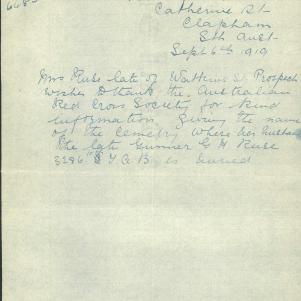 Catherine St
Clapham
Sth Aust
Sept 6th 1919
Mrs Ruse late of Watkins St Prospect
wishes to thank the Australian
Red Cross Society for kind
information giving the name
of the cemetry where her husband
the late Gunner G H Ruse
3286 F A B is buried